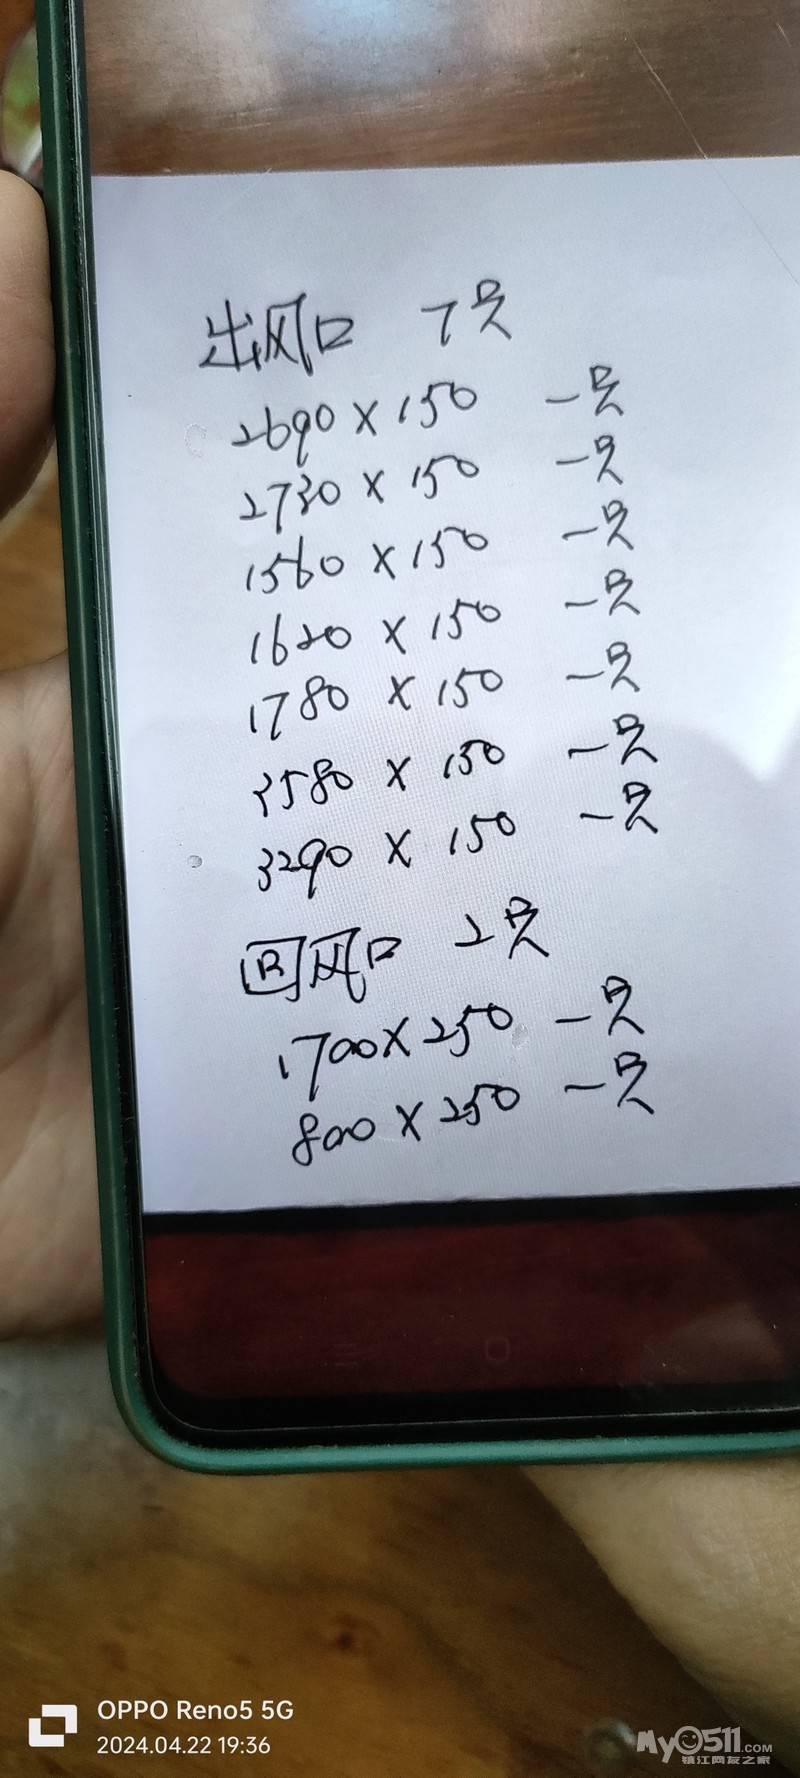 出风口 7只
2690×150 一只
2730×150 一只
1560×150 一只
1620×150 一只
1780×150 一只
3580×150 一只
3290×150 一只
回风口 2只
1700×250 一只
800×250 一只
OPPO Reno5 5G
2024.04.22 19:36
My0511.COM
镇江网友之家